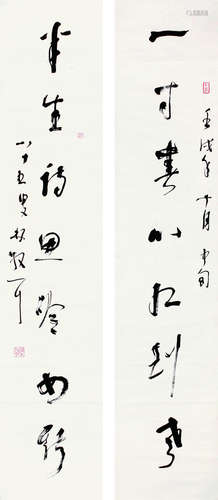 一寸書心红到
壬戌年十月中旬
半生詩思如
八十五叟林散耳